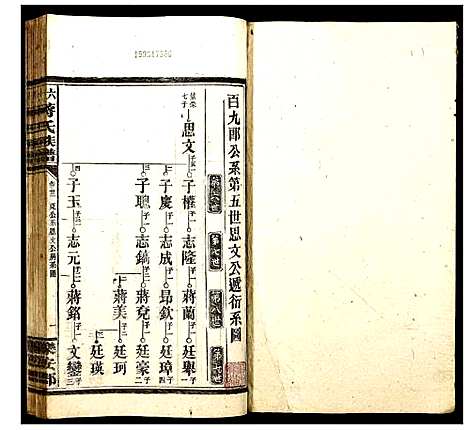 159247386
百九郎公系第五世思文公遞衍系圖
第六世
第七世
第八世
第九世
思文
子權 志隆 蔣蘭 廷舉
子慶 志成 昂欽 廷璋
子聰 志鎬 蔣堯 廷豪
蔣美 廷珂
廷瑛
子玉 志元 蔣銘 文鑾
六蔣氏族譜
思文公房系圖
一
樂安郡